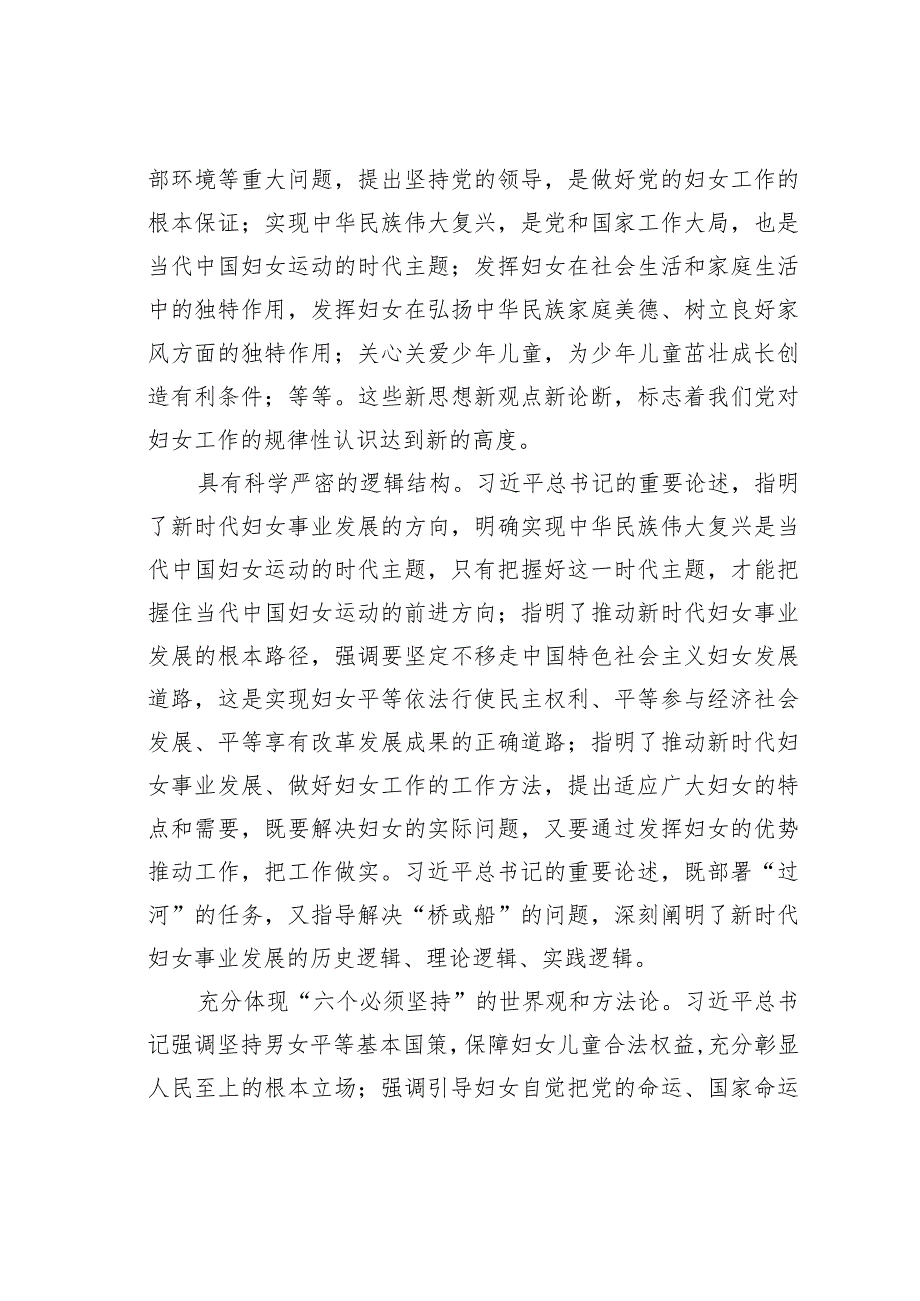 部环境等重大问题，提出坚持党的领导，是做好党的妇女工作的
根本保证；实现中华民族伟大复兴，是党和国家工作大局，也是
当代中国妇女运动的时代主题；发挥妇女在社会生活和家庭生活
中的独特作用，发挥妇女在弘扬中华民族家庭美德、树立良好家
风方面的独特作用；关心关爱少年儿童，为少年儿童茁壮成长创
造有利条件；等等。这些新思想新观点新论断，标志着我们党对
妇女工作的规律性认识达到新的高度。
具有科学严密的逻辑结构。习近平总书记的重要论述，指明
了新时代妇女事业发展的方向，明确实现中华民族伟大复兴是当
代中国妇女运动的时代主题，只有把握好这一时代主题，才能把
握住当代中国妇女运动的前进方向；指明了推动新时代妇女事业
发展的根本路径，强调要坚定不移走中国特色社会主义妇女发展
道路，这是实现妇女平等依法行使民主权利、平等参与经济社会
发展、平等享有改革发展成果的正确道路；指明了推动新时代妇
女事业发展、做好妇女工作的工作方法，提出适应广大妇女的特
点和需要，既要解决妇女的实际问题，又要通过发挥妇女的优势
推动工作，把工作做实。习近平总书记的重要论述，既部署“过
河”的任务，又指导解决“桥或船”的问题，深刻阐明了新时代
妇女事业发展的历史逻辑、理论逻辑、实践逻辑。
充分体现“六个必须坚持”的世界观和方法论。习近平总书
记强调坚持男女平等基本国策,保障妇女儿童合法权益,充分彰显
人民至上的根本立场；强调引导妇女自觉把党的命运、国家命运